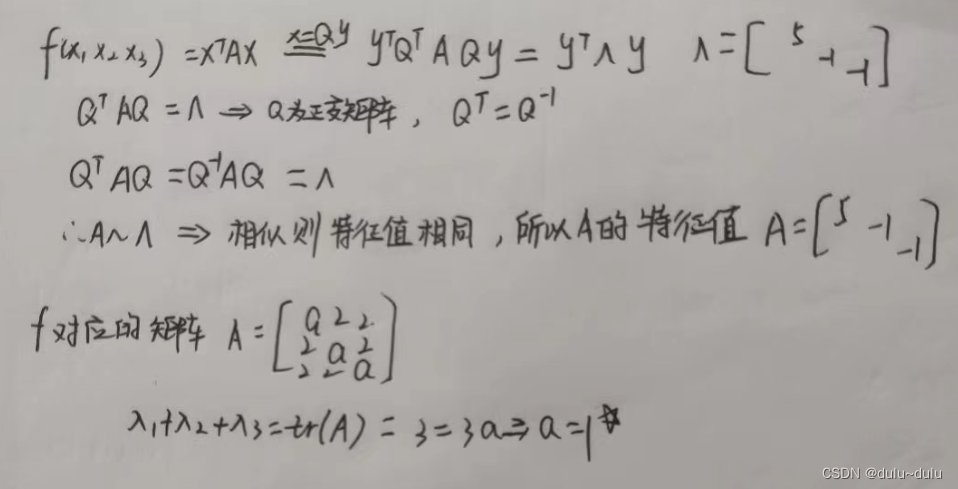 f(x₁ x₂ x₃) = xᵀAx x=Qy yᵀQᵀAQy = yᵀΛy Λ = [5 -1 -1]
QᵀAQ = Λ ⇒ Q为正交矩阵, Qᵀ = Q⁻¹
QᵀAQ = Q⁻¹AQ = Λ
∴A∼Λ ⇒ 相似则特征值相同, 所以A的特征值 A = [5 -1 -1]
f对应的矩阵 A = [a 2 2
2 a 2
2 2 a]
λ₁+λ₂+λ₃ = tr(A) = 3 = 3a ⇒ a = 1
CSDN @dulu~dulu